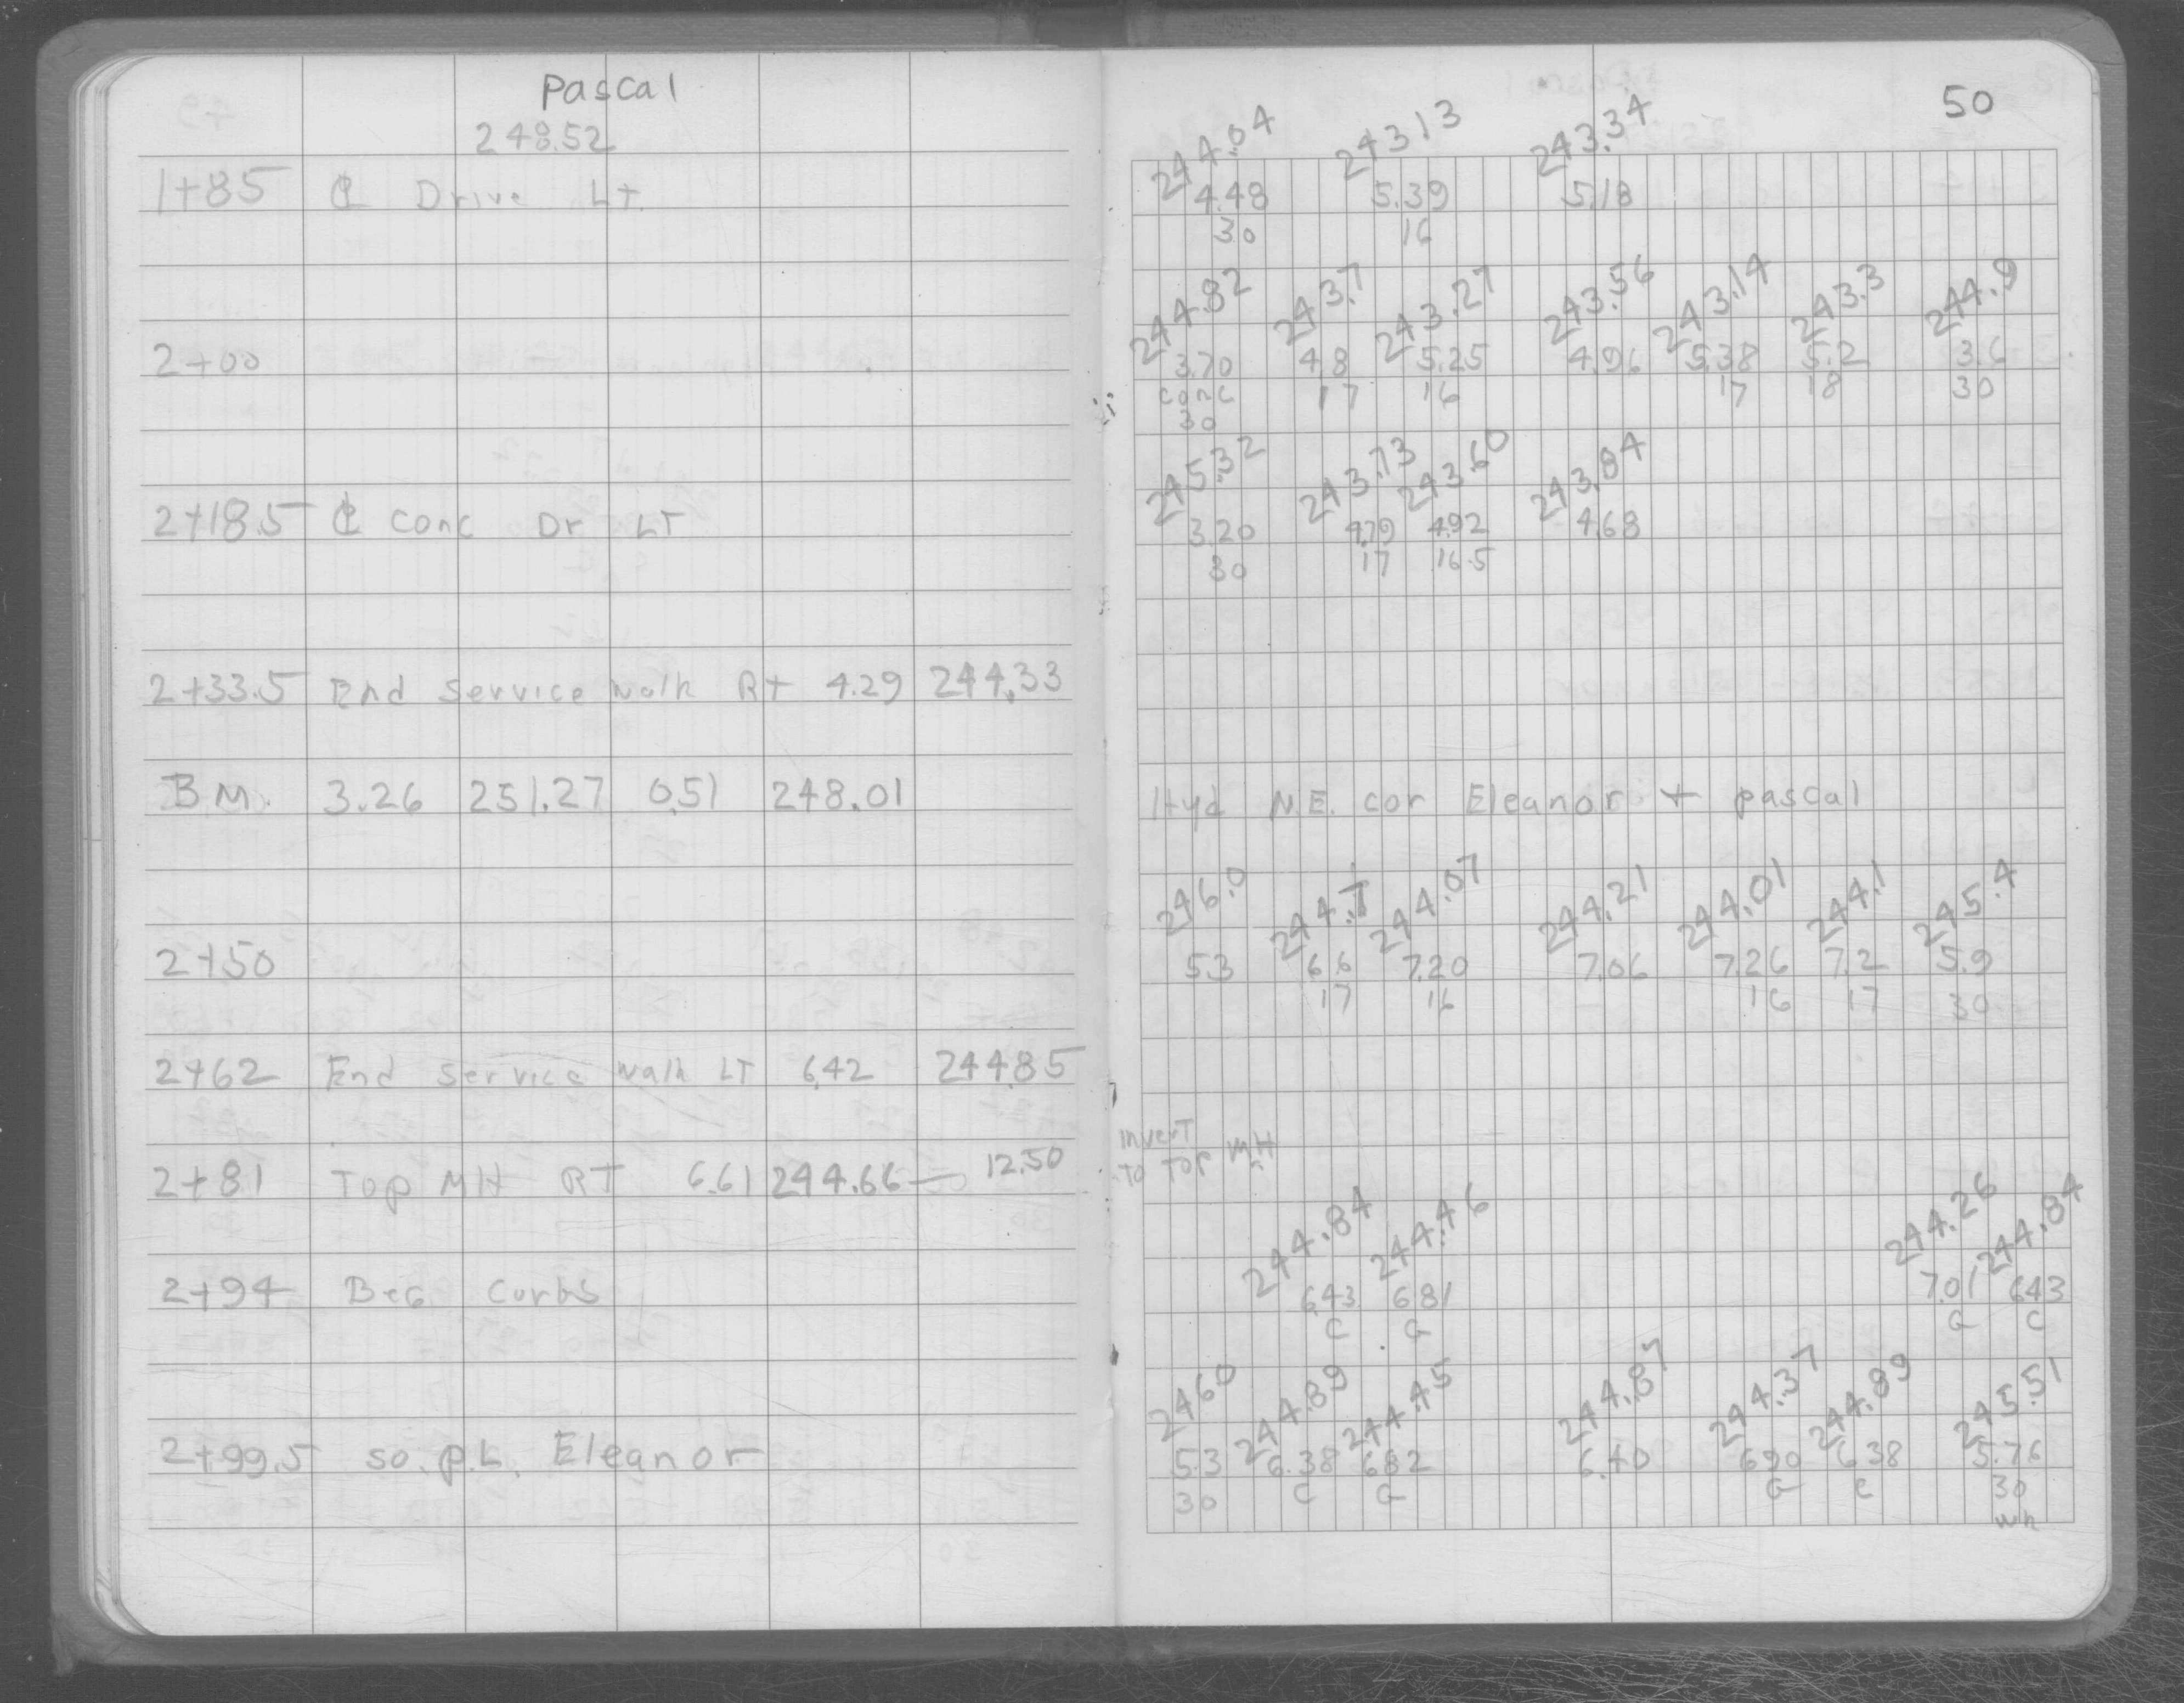 Pascal
248.52
1+85 ℄ Drive Lt.
2+00
2+18.5 ℄ Conc Dr LT
2+33.5 End Service Walk Rt 4.29 244.33
B.M. 3.26 251.27 0.51 248.01
2+50
2+62 End Service Walk LT 6.42 244.85
2+81 Top MH RT 6.61 244.66 — 12.50
2+94 Beg Curbs
2+99.5 so. p.L. Eleanor
50
244.04 243.13 243.34
4.48 5.39 5.18
30 16
244.82 243.7 243.27 243.56 243.14 243.3 244.9
3.70 4.8 5.25 4.96 5.38 5.2 3.6
conc 17 16 17 18 30
30
245.32 243.73 243.60 243.84
3.20 4.79 4.92 4.68
30 17 16.5
Hyd N.E. cor Eleanor + pascal
246.0 244.7 244.07 244.21 244.01 244.1 245.4
5.3 6.6 7.20 7.06 7.26 7.2 5.9
17 16 16 17 30
invert
To Top MH
244.84 244.46 244.26 244.84
6.43 6.81 7.01 6.43
C G G C
246.0 244.89 244.45 244.87 244.37 244.89 245.51
5.3 6.38 6.82 6.40 6.90 6.38 5.76
30 C G G C 30
wk